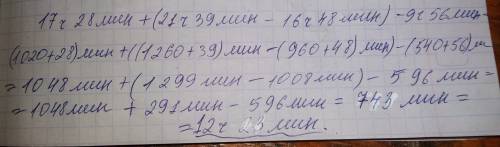 17ч 28мин + (21ч 39мин - 16ч 48мин) - 9ч 56мин =
(1020+28)мин + ((1260+39)мин - (960+48)мин) - (540+56)м
= 1048мин + (1299мин - 1008мин) - 596мин =
= 1048мин + 291мин - 596мин = 743 мин =
= 12ч 23 мин.